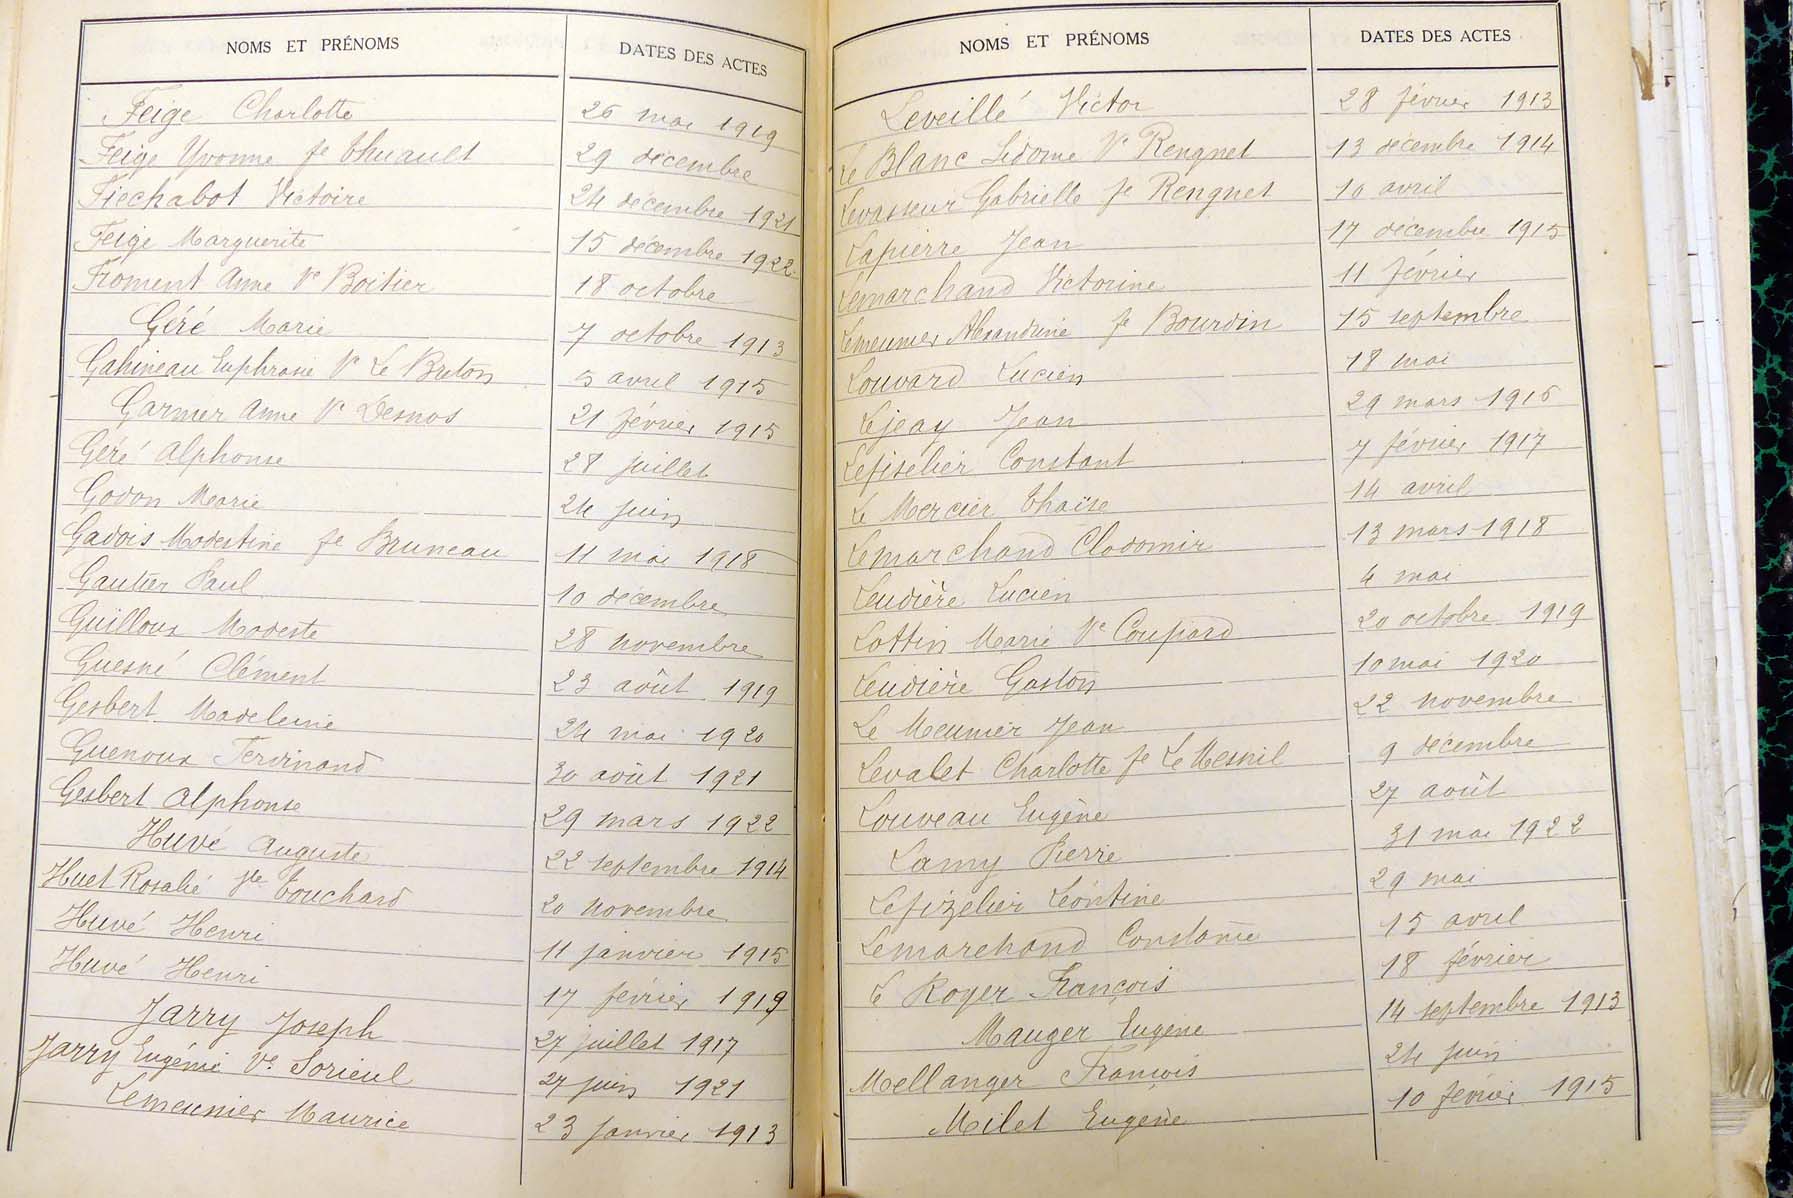 NOMS ET PRÉNOMS DATES DES ACTES
Feige Charlotte 26 mai 1919
Feige Yvonne fe Thuault 29 décembre
Fiechabot Victoire 24 décembre 1921
Feige Marguerite 15 décembre 1922
Froment Anne Ve Boitier 18 octobre
Géré Marie 7 octobre 1913
Gahineau Euphrasie Ve Le Breton 5 avril 1915
Garnier Anne Ve Desnos 21 février 1915
Géré Alphonse 28 juillet
Godon Marie 24 juin
Gadois Modestine fe Bruneau 11 mai 1918
Gautier Paul 10 décembre
Guilloux Modeste 28 novembre
Guesné Clément 23 août 1919
Gesbert Madeleine 24 mai 1920
Guenoux Ferdinand 30 août 1921
Gesbert Alphonse 29 mars 1922
Huvé Auguste 22 septembre 1914
Huet Rosalie fe Touchard 20 novembre
Huvé Henri 11 janvier 1915
Huvé Henri 17 février 1919
Jarry Joseph 27 juillet 1917
Jarry Eugénie Ve Sorieul 27 juin 1921
Lemeunier Maurice 23 janvier 1913
NOMS ET PRÉNOMS DATES DES ACTES
Leveillé Victor 28 février 1913
Le Blanc Sidonie Ve Rengnet 13 décembre 1914
Levasseur Gabrielle fe Rengnet 10 avril
Lapierre Jean 17 décembre 1915
Lemarchand Victorine 11 février
Lemeunier Alexandrine fe Bourdin 15 septembre
Louvard Lucien 18 mai
Lejeay Jean 29 mars 1916
Lefiselier Constant 7 février 1917
Le Mercier Thaïse 14 avril
Lemarchand Clodomir 13 mars 1918
Leudière Lucien 4 mai
Lottin Marie Ve Coupard 20 octobre 1919
Leudière Gaston 10 mai 1920
Le Meunier Jean 22 novembre
Levalet Charlotte fe Le Mesnil 9 décembre
Louveau Eugène 27 août
Lamy Pierre 31 mai 1922
Lefizelier Léontine 29 mai
Lemarchand Constance 15 avril
Le Royer François 18 février
Mauger Eugène 14 septembre 1913
Mellanger François 24 juin
Milet Eugène 10 février 1915